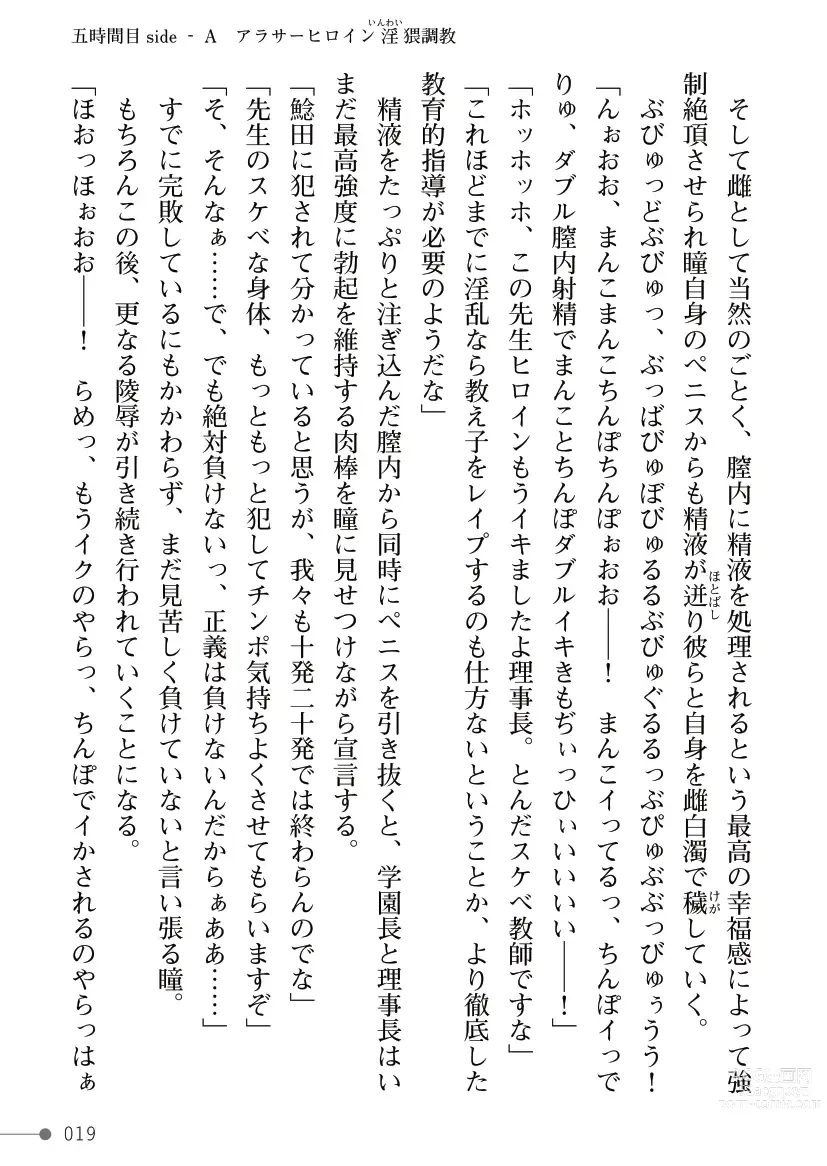 五時間目 side - A　アラサーヒロイン淫猥調教
いんわい
そして雌として当然のごとく、膣内に精液を処理されるという最高の幸福感によって強
制絶頂させられ瞳自身のペニスからも精液が迸り彼らと自身を雌白濁で穢していく。
ほとばし
けが
ぶびゅっどぶびゅっ、ぶっばびゅぼびゅるるぶびゅぐるるっぶぴゅぶぶっびゅぅうう！
「んぉおお、まんこまんこちんぽちんぽぉおお――！　まんこイってるっ、ちんぽイっで
りゅ、ダブル膣内射精でまんことちんぽダブルイキきもぢぃっひぃいいいい――！」
「ホッホッホ、この先生ヒロインもうイキましたよ理事長。とんだスケベ教師ですな」
「これほどまでに淫乱なら教え子をレイプするのも仕方ないということか、より徹底した
教育的指導が必要のようだな」
精液をたっぷりと注ぎ込んだ膣内から同時にペニスを引き抜くと、学園長と理事長はい
まだ最高強度に勃起を維持する肉棒を瞳に見せつけながら宣言する。
「鯰田に犯されて分かっていると思うが、我々も十発二十発では終わらんのでな」
「先生のスケベな身体、もっともっと犯してチンポ気持ちよくさせてもらいますぞ」
「そ、そんなぁ……で、でも絶対負けないっ、正義は負けないんだからぁああ……」
すでに完敗しているにもかかわらず、まだ見苦しく負けていないと言い張る瞳。
もちろんこの後、更なる陵辱が引き続き行われていくことになる。
「ほおっほぉおお――！　らめっ、もうイクのやらっ、ちんぽでイかされるのやらっはぁ
019